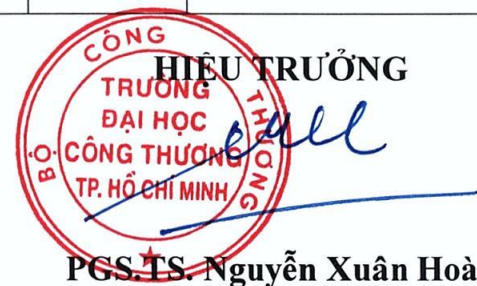 HIỆU TRƯỞNG
BỘ CÔNG THƯƠNG
TRƯỜNG
ĐẠI HỌC
CÔNG THƯƠNG
TP. HỒ CHÍ MINH
PGS.TS. Nguyễn Xuân Hoà